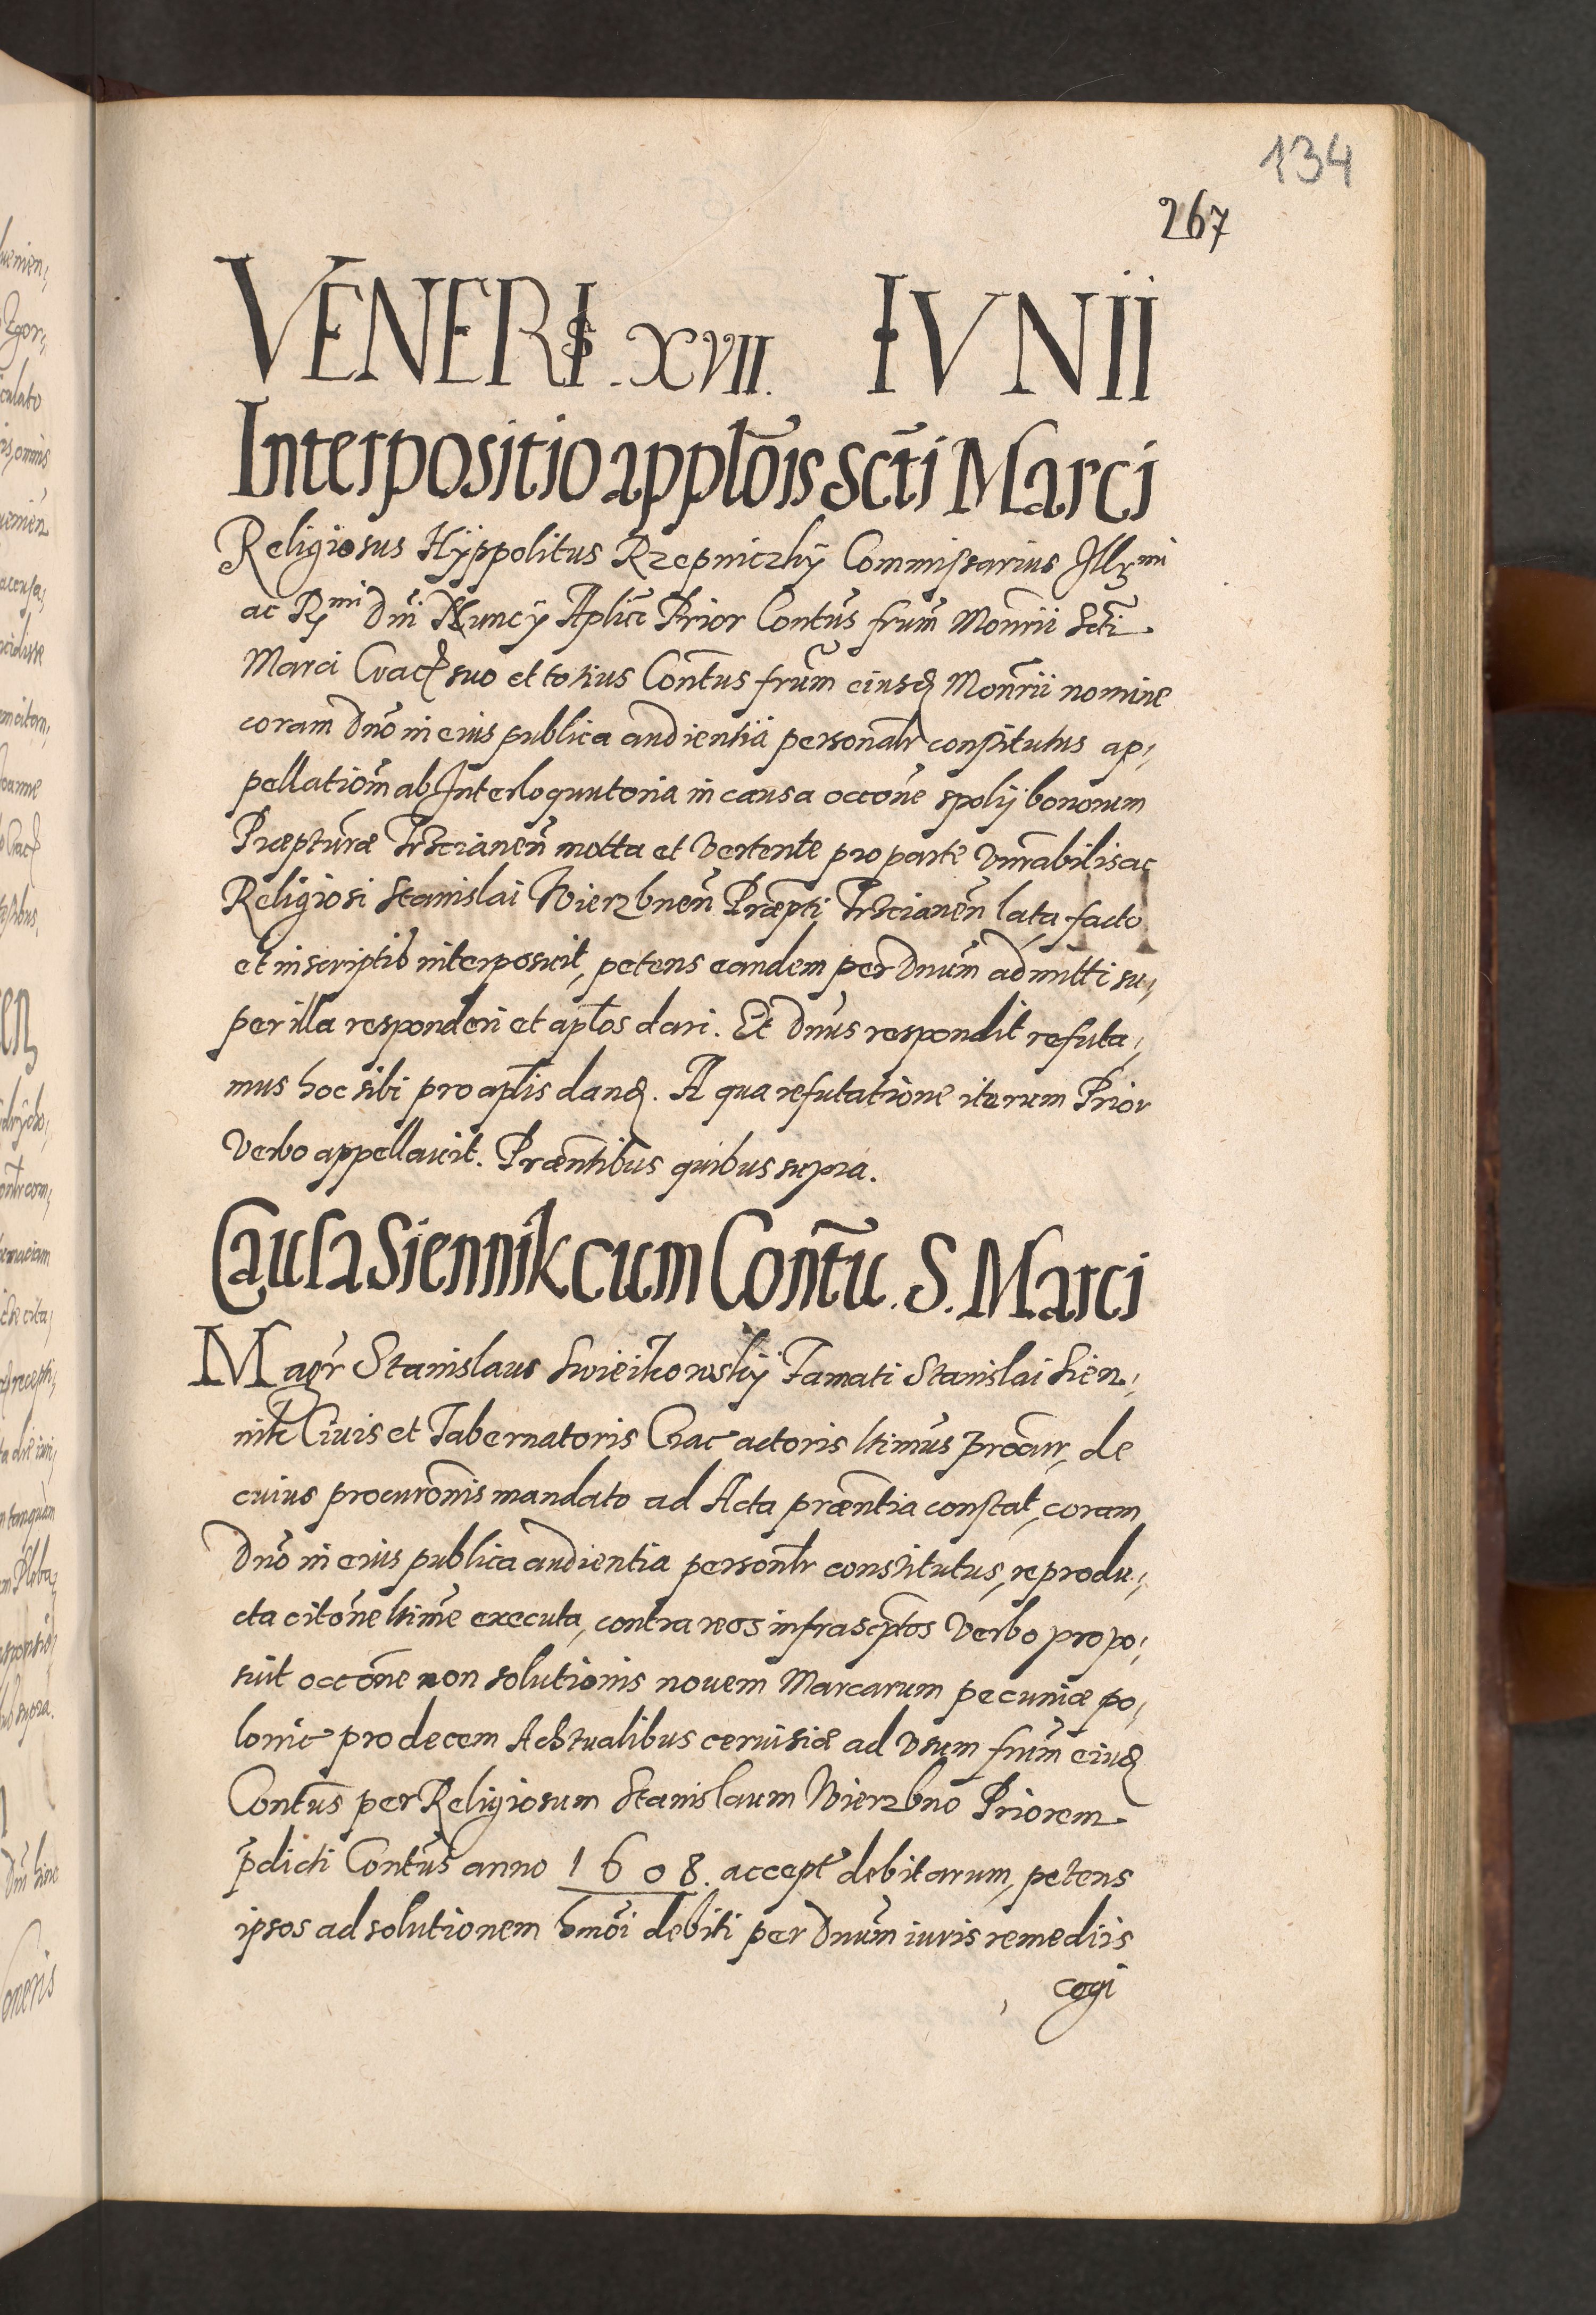 134
267
VENERIS. XVII. IVNII
Interpositio applõis Scti Marci
Religiosus Hÿppolitus Rzepniczkÿ Commissarius Illr̃mi
ac Rmi Dni Nuncÿ Aplic̃ Prior Contũs frum̃ Monr̃ii Scti
Marci Crac̃ suo et totius Contũs frum̃ eiusd̃ Monr̃ii nomine
coram Dnõ in eius publica audientiã personalr̃ constitutus ap,
pellationm̃ ab Interloquutoria in causa occone spolÿ bonorum
Præpturæ Trscianen̄ motta et vertente pro parte Vnrãbilis ac
Religiosi Stanislai Wierzbnen̄ Præpti Trscianen̄ lata, facto
et in scriptis interposuit, petens eandem per Dnum̃ admitti su,
per illa responderi et aplos dari. Et Dnus respondit refuta,
mus hoc sibi pro aplis dand̃. A qua refutatione iterum Prior
Verbo appellauit. Præntibus quibus supra.
Causa Siennik cum Contũ. S. Marci
Magr̃ Stanislaus Swieikowskÿ Famati Stanislai Sien,
nik Ciuis et Tabernatoris Crac̃ actoris ltimus procur, de
cuius procurõnis mandato ad Acta præntia constat, coram
Dnõ in eius publica audientia personlr̃ constitutus, reprodu,
cta citõne ltime executa, contra reos infrascptos Verbo propo,
suit occõne non solutionis nouem Marcarum pecuniæ po,
lonic̃ pro decem Achtualibus ceruisiæ ad Vsum frum̃ eiusd̃
Contũs per Religiosum Stanislaum Wierzbno Priorem
p̃dicti Contũs anno 1608. accept̃ debitarum, petens
ipsos ad solutionem hmõi debiti per Dnum̃ iuris remediis
cogi